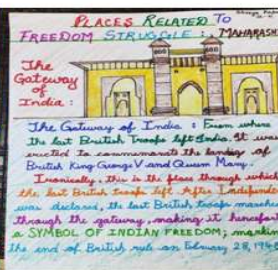 PLACES RELATED TO
FREEDOM STRUGGLE : MAHARASH
The
Gateway
of
India :
The Gateway of India : From where
the last British Troops left India. It was
erected to commemorate the landing of
British King George V and Queen Mary.
Ironically, this is the place through which
the last British troops left. After Independ
was declared, the last British troops marched
through the gateway, making it hencefor
a SYMBOL OF INDIAN FREEDOM; marking
the end of British rule on February 28, 194